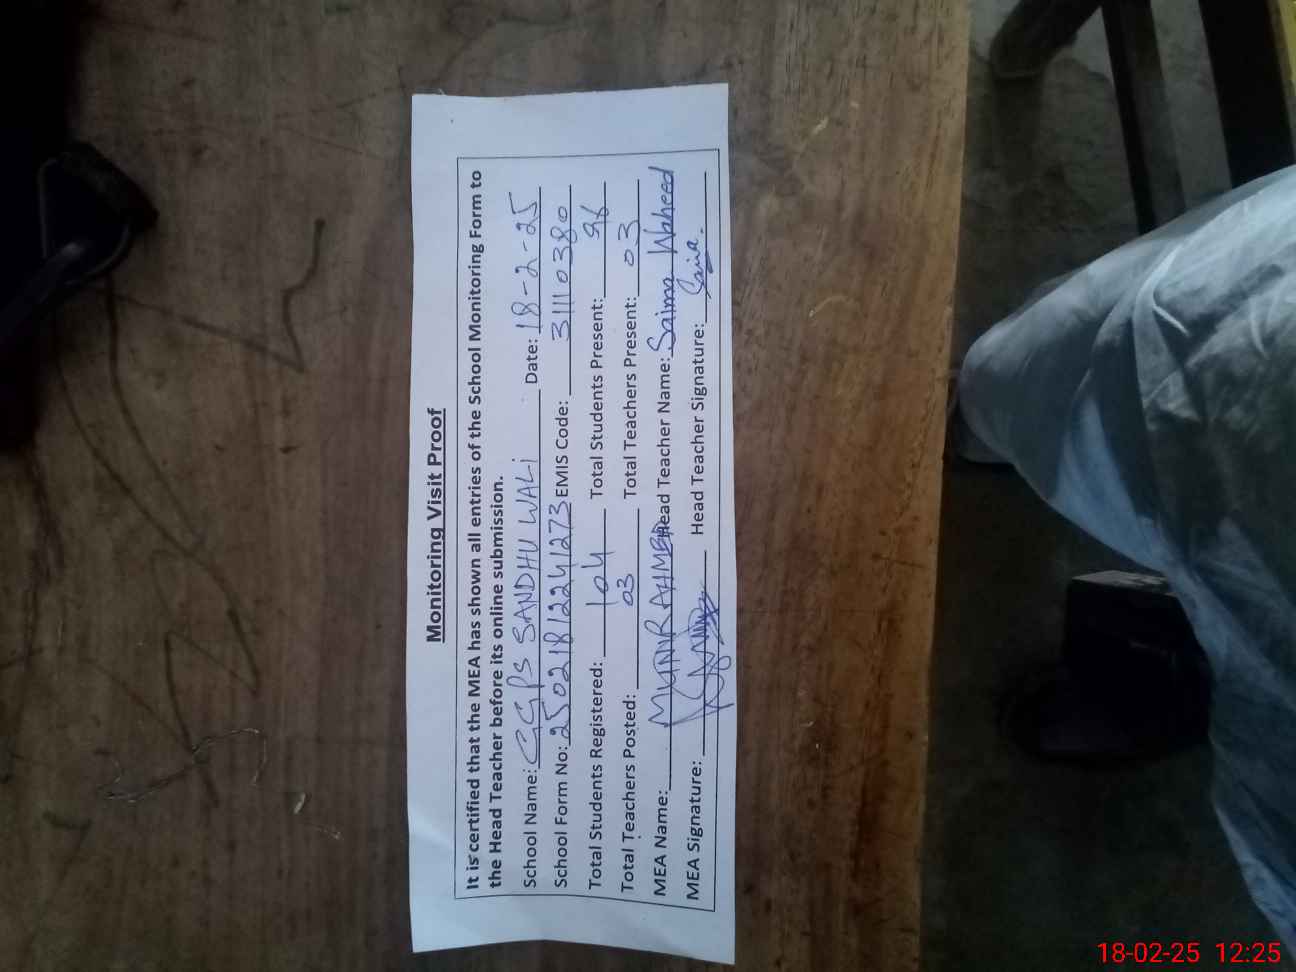 Monitoring Visit Proof
It is certified that the MEA has shown all entries of the School Monitoring Form to
the Head Teacher before its online submission.
School Name: GGPS SANDHU WALi Date: 18-2-25
School Form No: 25021812241273 EMIS Code: 31110380
Total Students Registered: 104 Total Students Present: 96
Total Teachers Posted: 03 Total Teachers Present: 03
MEA Name: MUNIR AHMED Head Teacher Name: Saima Waheed
MEA Signature: Head Teacher Signature:
18-02-25 12:25